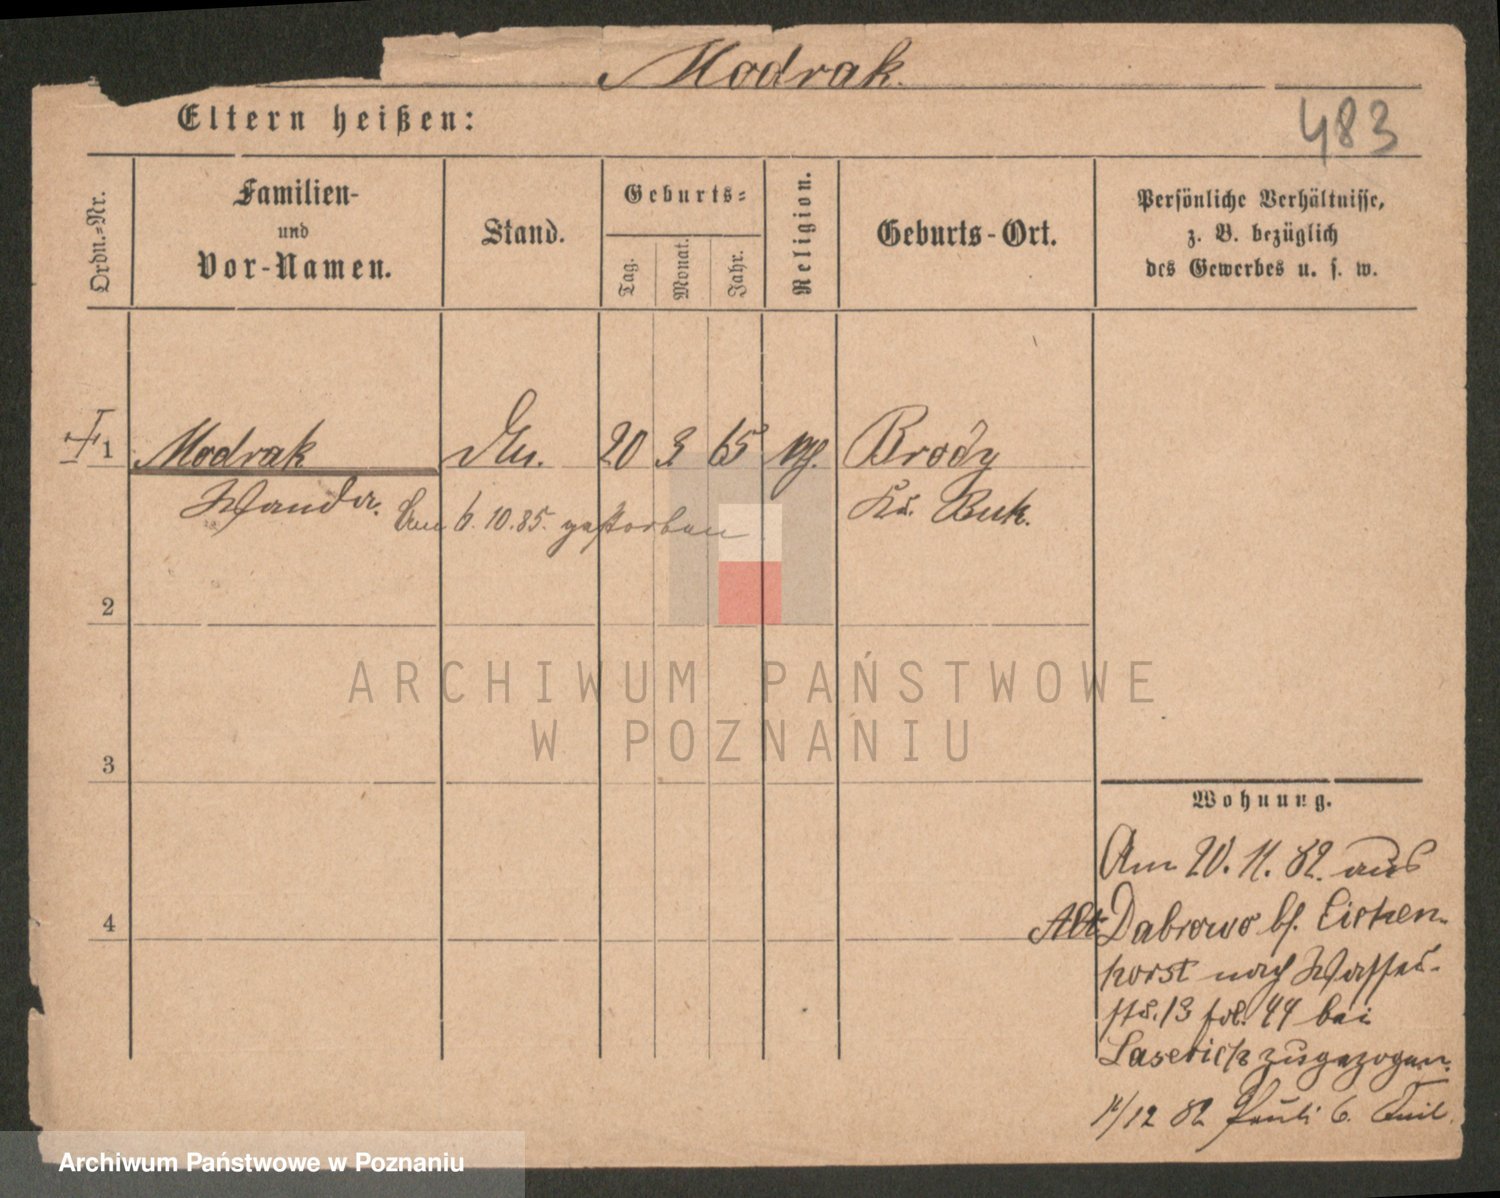 Modrak.
483
Eltern heißen:
Ordn.-Nr.
Familien-
und
Vor-Namen.
Stand.
Geburts-
Tag.
Monat.
Jahr.
Religion.
Geburts-Ort.
Persönliche Verhältnisse,
z. B. bezüglich
des Gewerbes u. s. w.
1 Modrak 20 3 65 Brody
Wanda. Kr. Buk.
Am 6. 10. 85. gestorben
2
3
4
ARCHIWUM PAŃSTWOWE
W POZNANIU
Wohnung.
Am 20. 11. 82. aus
Alt Dabrowo bei Eichen-
horst nach Wasser-
str. 13 fol. 44 bei
zugezogen.
/12 82 Pauli 6.
Archiwum Państwowe w Poznaniu